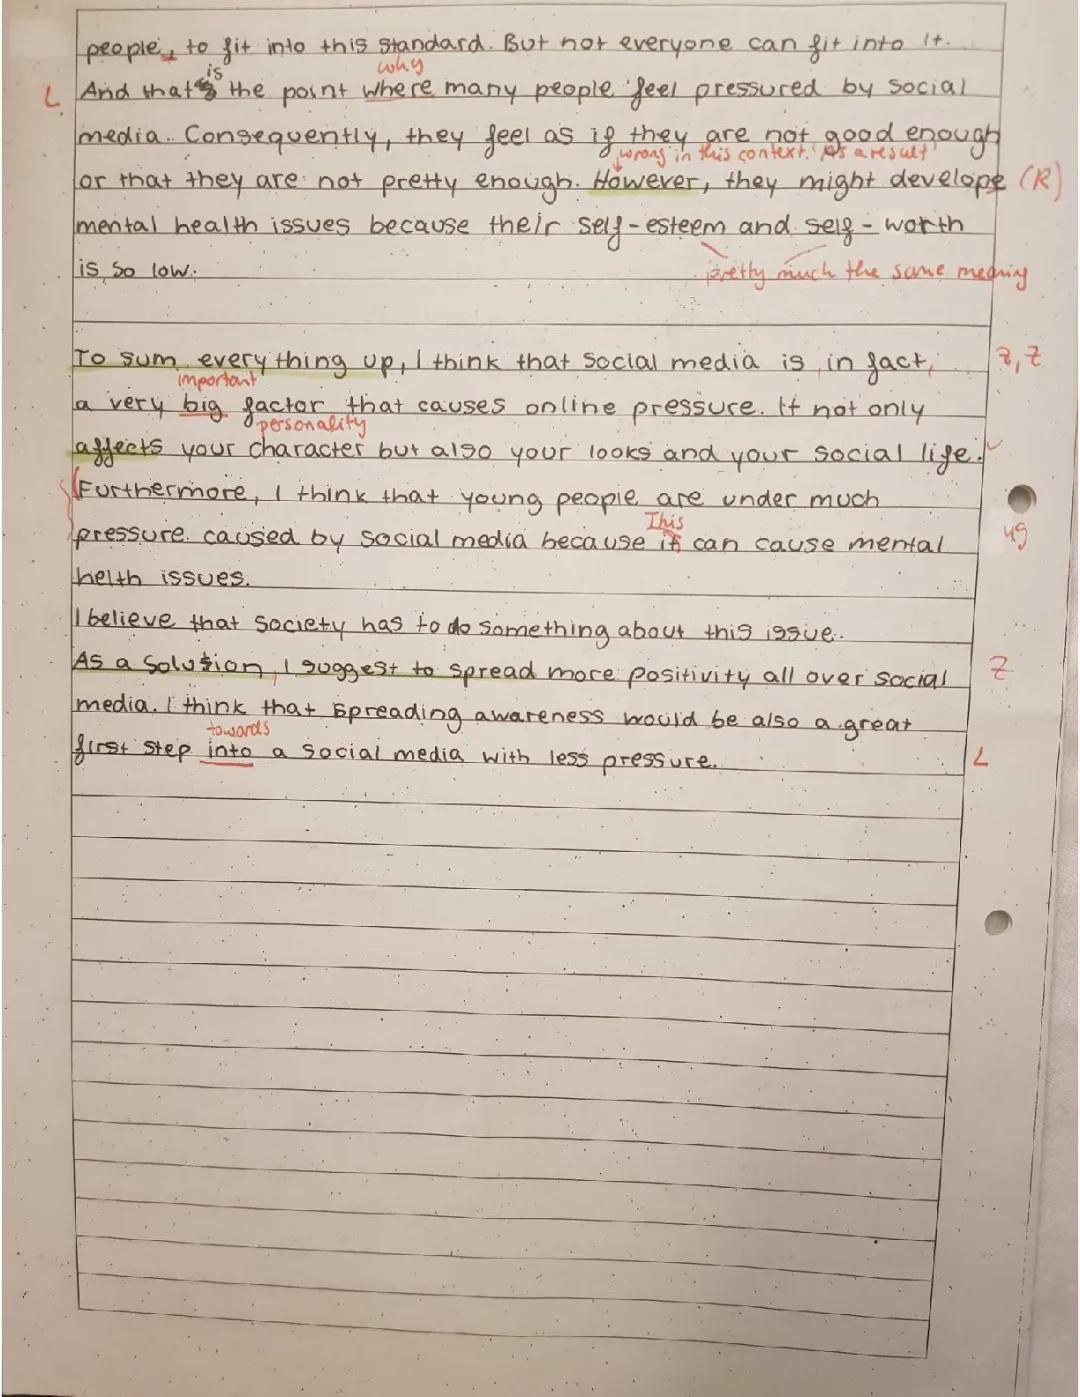 people, to fit into this standard. But not everyone can fit into it.
is why
L And that's the point where many people feel pressured by social
media. Consequently, they feel as if they are not good enough
wrong in this context. As a result
or that they are not pretty enough. However, they might develope (R)
mental health issues because their self-esteem and self-worth
is so low.
pretty much the same meaning
To sum everything up, I think that social media is, in fact, Z, Z
important
a very big factor that causes online pressure. It not only
personality
affects your character but also your looks and your social life.
Furthermore, I think that young people are under much
This
pressure caused by social media because it can cause mental
helth issues.
I believe that society has to do something about this issue.
As a solution, I suggest to spread more positivity all over social Z
media. I think that spreading awareness would be also a great
towards
first step into a social media with less pressure. L